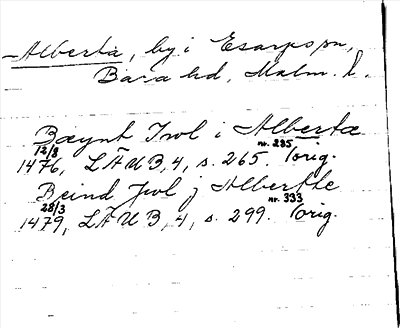 Alberta, by i Esarps sn,
Bara hd, Malm. l.
Bæynt Jwl i Albertæ
12/8 nr. 285
1476, LÄUB, 4, s. 265. (orig.
Beind Jwl j Albertte
28/3 nr. 333
1479, LÄUB, 4, s. 299. (orig.